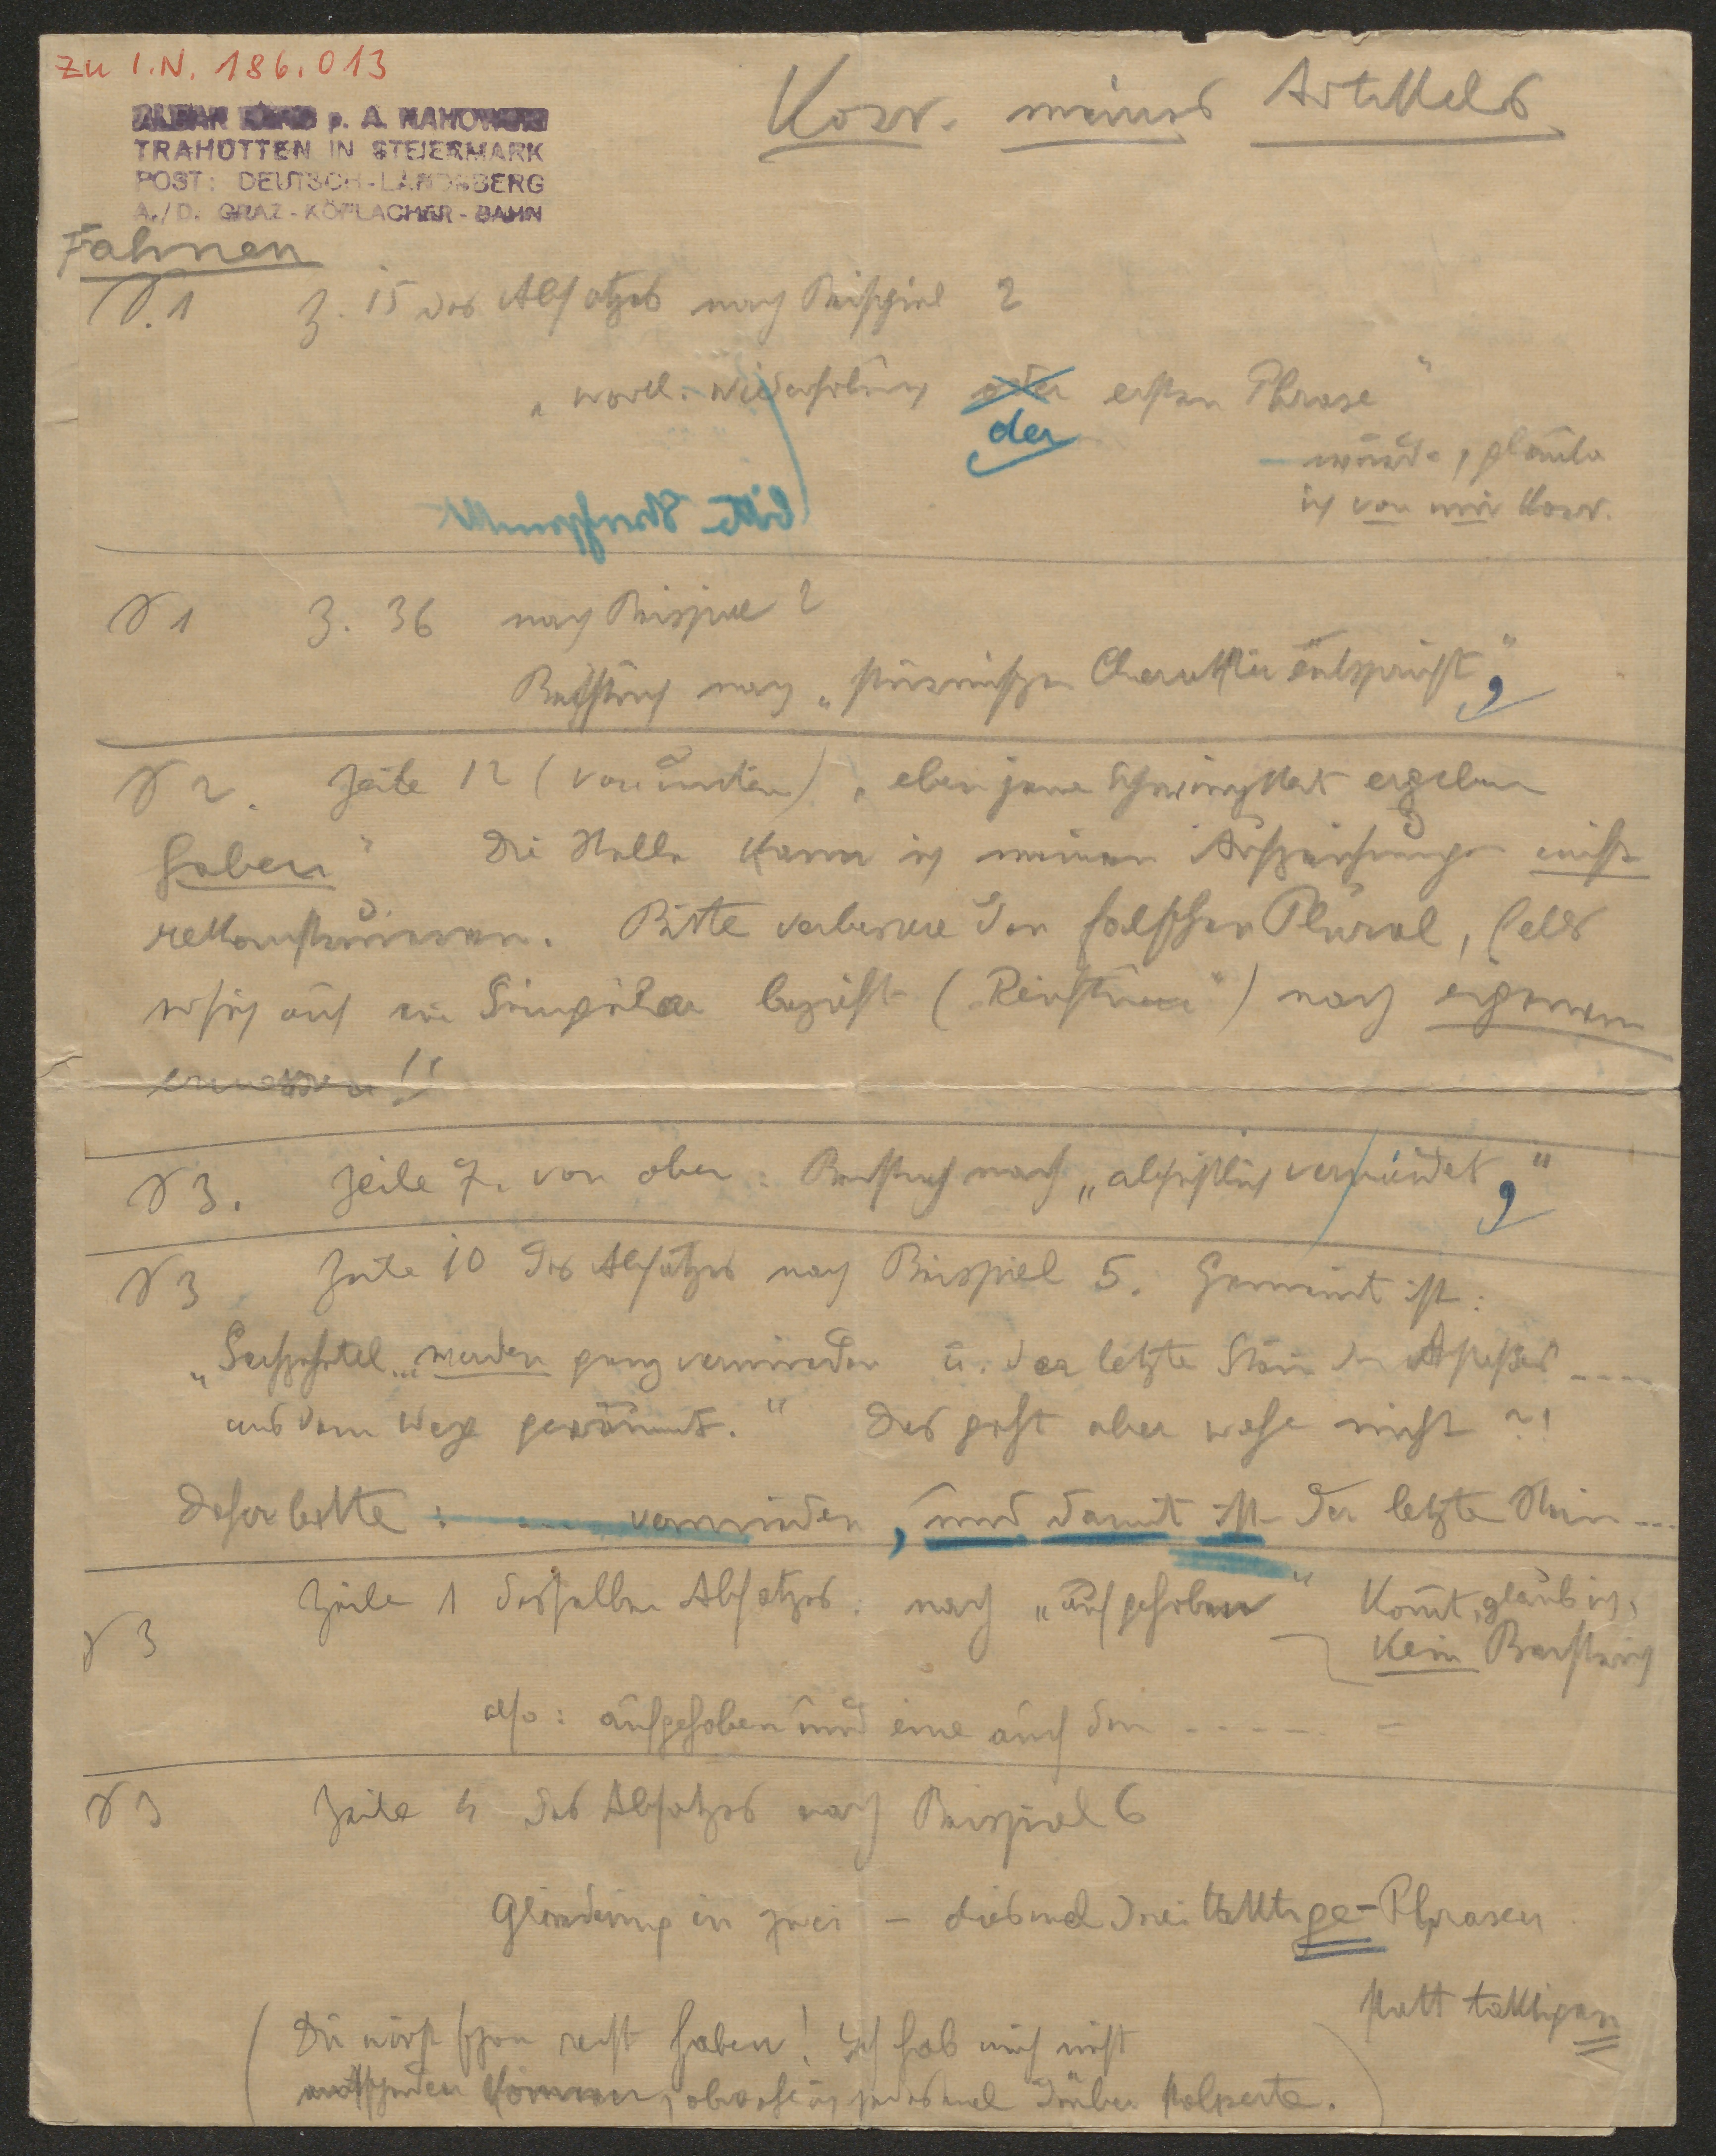 zu I.N. 186.013
ALBAN BERG p. A. NAHOWSKI
TRAHÜTTEN IN STEIERMARK
POST: DEUTSCH-LANDSBERG
A./D. GRAZ-KÖFLACHER-BAHN
Korr. meines Artikels
Fahnen
S. 1 Z. 15 des Absatzes nach Beispiel 2
„wörtl. Wiederholung oder ersten Phrase"
der
wurde, glaube
ich von mir korr.
bitte
S 1 Z. 36 nach Beispiel 2
Beistrich nach „stürmischen Charakter entspricht,"
S 2. Zeile 12 (von unten) „eben jene Schwingkraft ergeben
haben" Die Stelle kann ich meinen Aufzeichnungen nicht
rekonstruieren. Bitte verbessere den falschen Plural, falls
er sich auf ein Singular bezieht („Reichtum") nach eigenem
ermessen!!
S 3. Zeile 7. von oben: Beistrich nach „absichtlich vermeidet,"
S 3 Zeile 10 des Absatzes nach Beispiel 5. Gemeint ist:
„Sechzehntel... werden ganz vermieden u. der letzte Stein des Anstoßes ....
aus dem Wege geräumt." Das geht aber wohl nicht?!
Daher bitte: .... vermieden, und damit ist der letzte Stein ...
S 3 Zeile 1 desselben Absatzes: nach „aufgehoben" kommt, glaub ich,
kein Beistrich
also: aufgehoben und eine auch den ------
S 3 Zeile 4 des Absatzes nach Beispiel 6
Gliederung in zwei - diesmal dreitaktige-Phrasen
statt taktigen
(Du wirst schon recht haben! Ich hab mich nicht
entscheiden können, obwohl ich jedesmal drüber stolperte.)